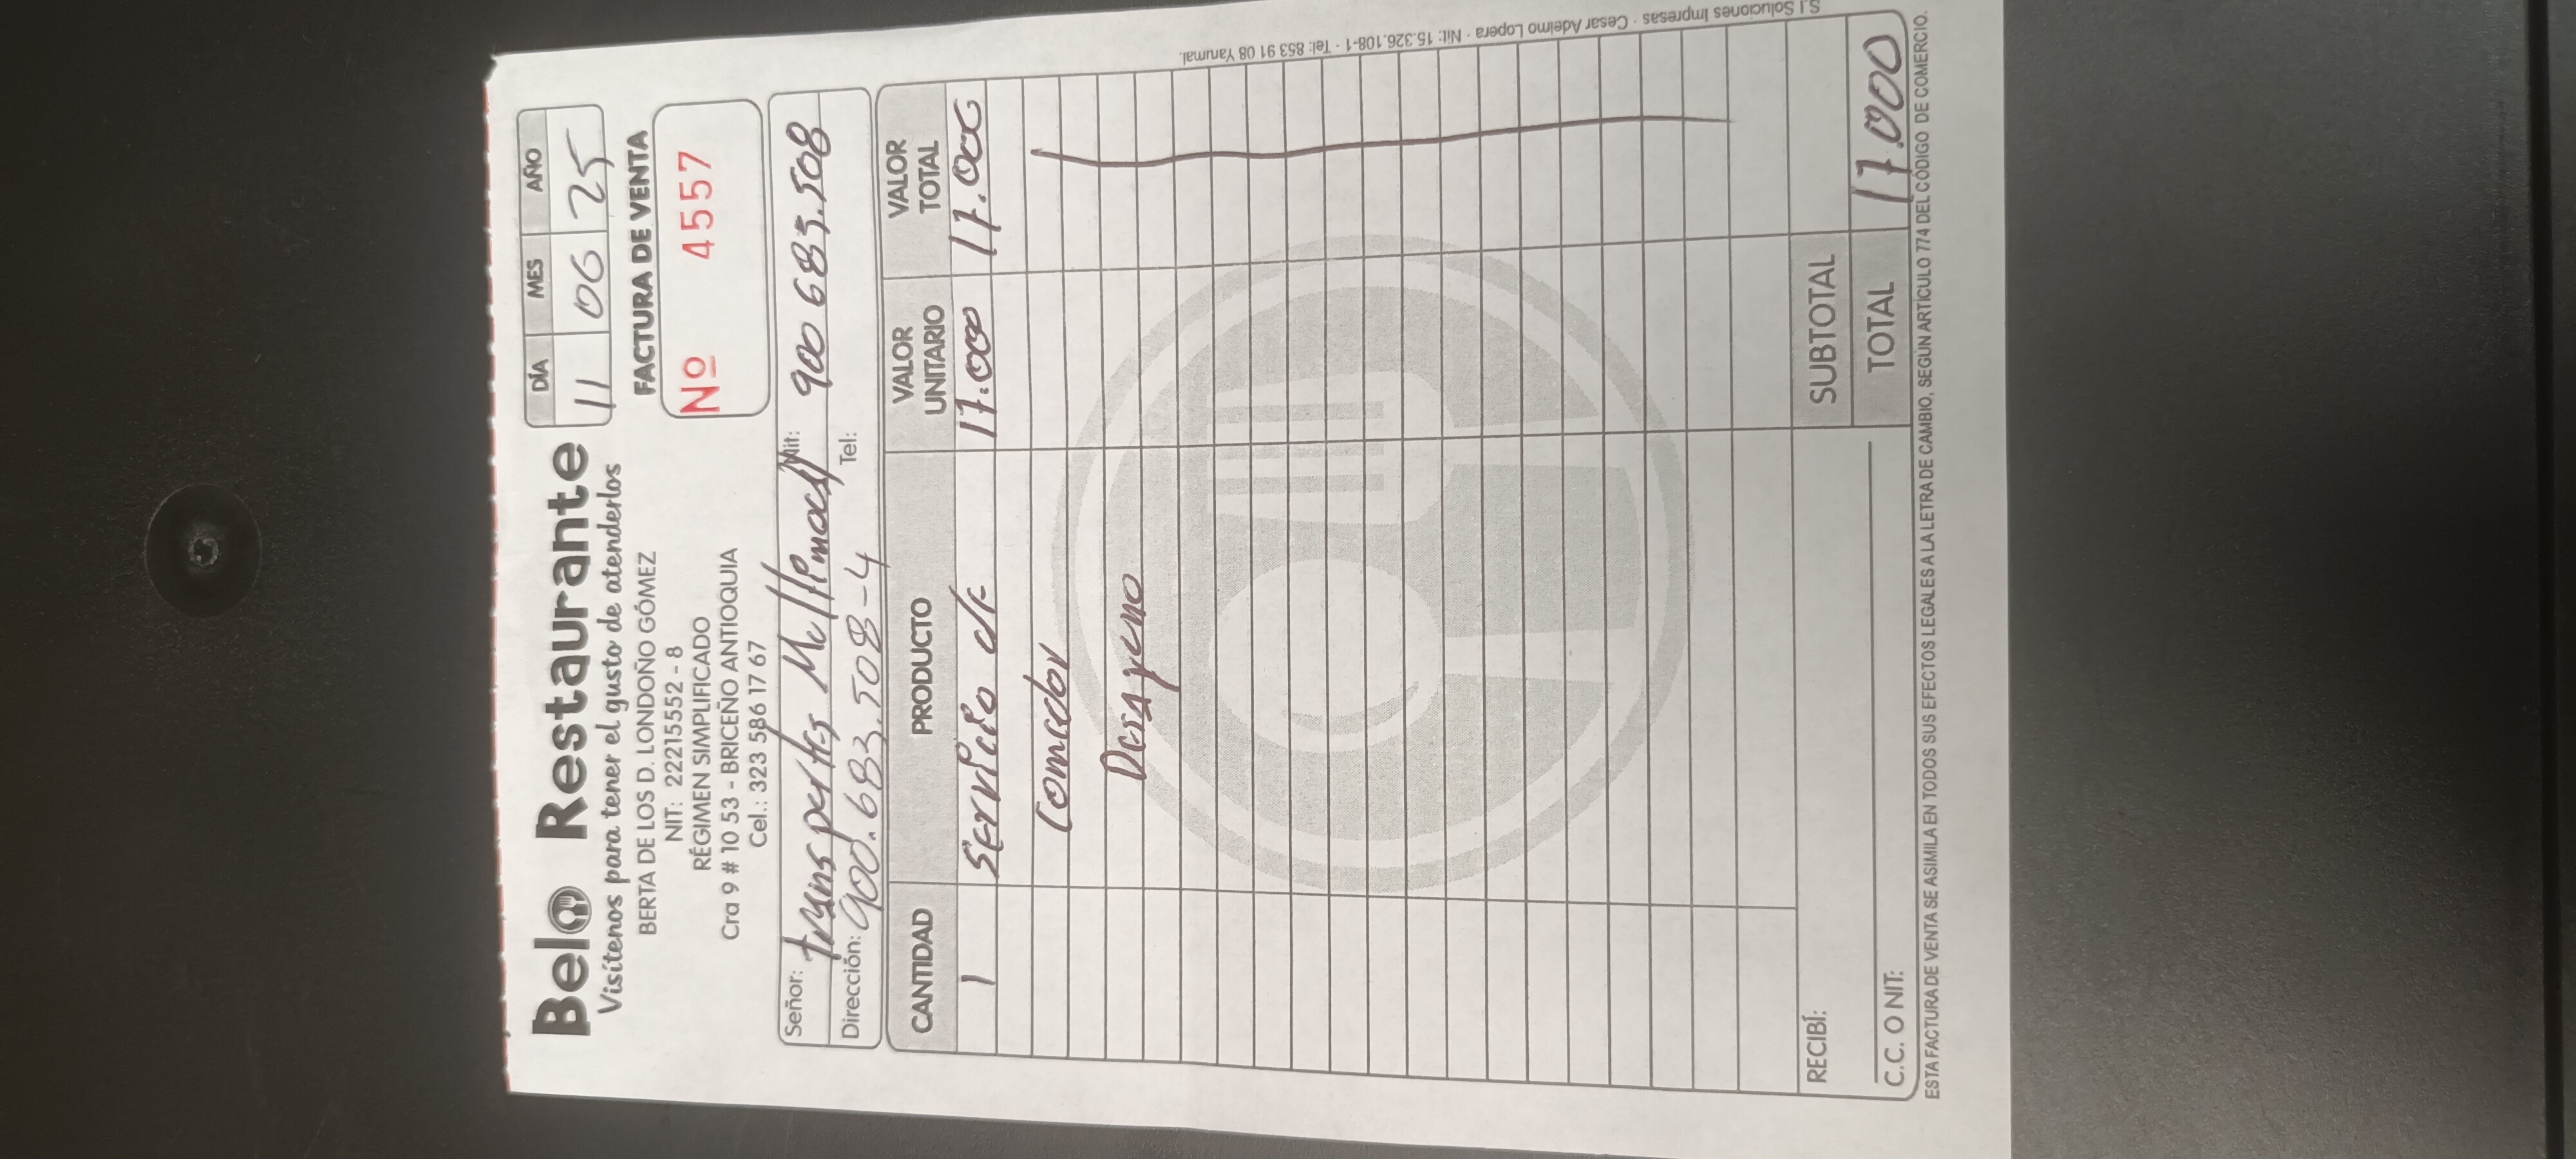 Belo Restaurante
Visítenos para tener el gusto de atenderlos
BERTA DE LOS D. LONDOÑO GÓMEZ
NIT: 22215552 - 8
RÉGIMEN SIMPLIFICADO
Cra 9 # 10 53 - BRICEÑO ANTIOQUIA
Cel.: 323 586 17 67
DÍA MES AÑO
11 06 25
FACTURA DE VENTA
Nº 4557
Señor: Nit: 900 683.508
Dirección: 900.683.508-4 Tel:
CANTIDAD PRODUCTO VALOR UNITARIO VALOR TOTAL
1 Servicio de 17.000 17.000
Comedor
Desayuno
RECIBÍ:
C.C. O NIT:
SUBTOTAL
TOTAL 17.000
ESTA FACTURA DE VENTA SE ASIMILA EN TODOS SUS EFECTOS LEGALES A LA LETRA DE CAMBIO, SEGÚN ARTÍCULO 774 DEL CÓDIGO DE COMERCIO.
S.I Soluciones Impresas - Cesar Adelmo Lopera - Nit: 15.326.108-1 - Tel: 853 91 08 Yarumal.